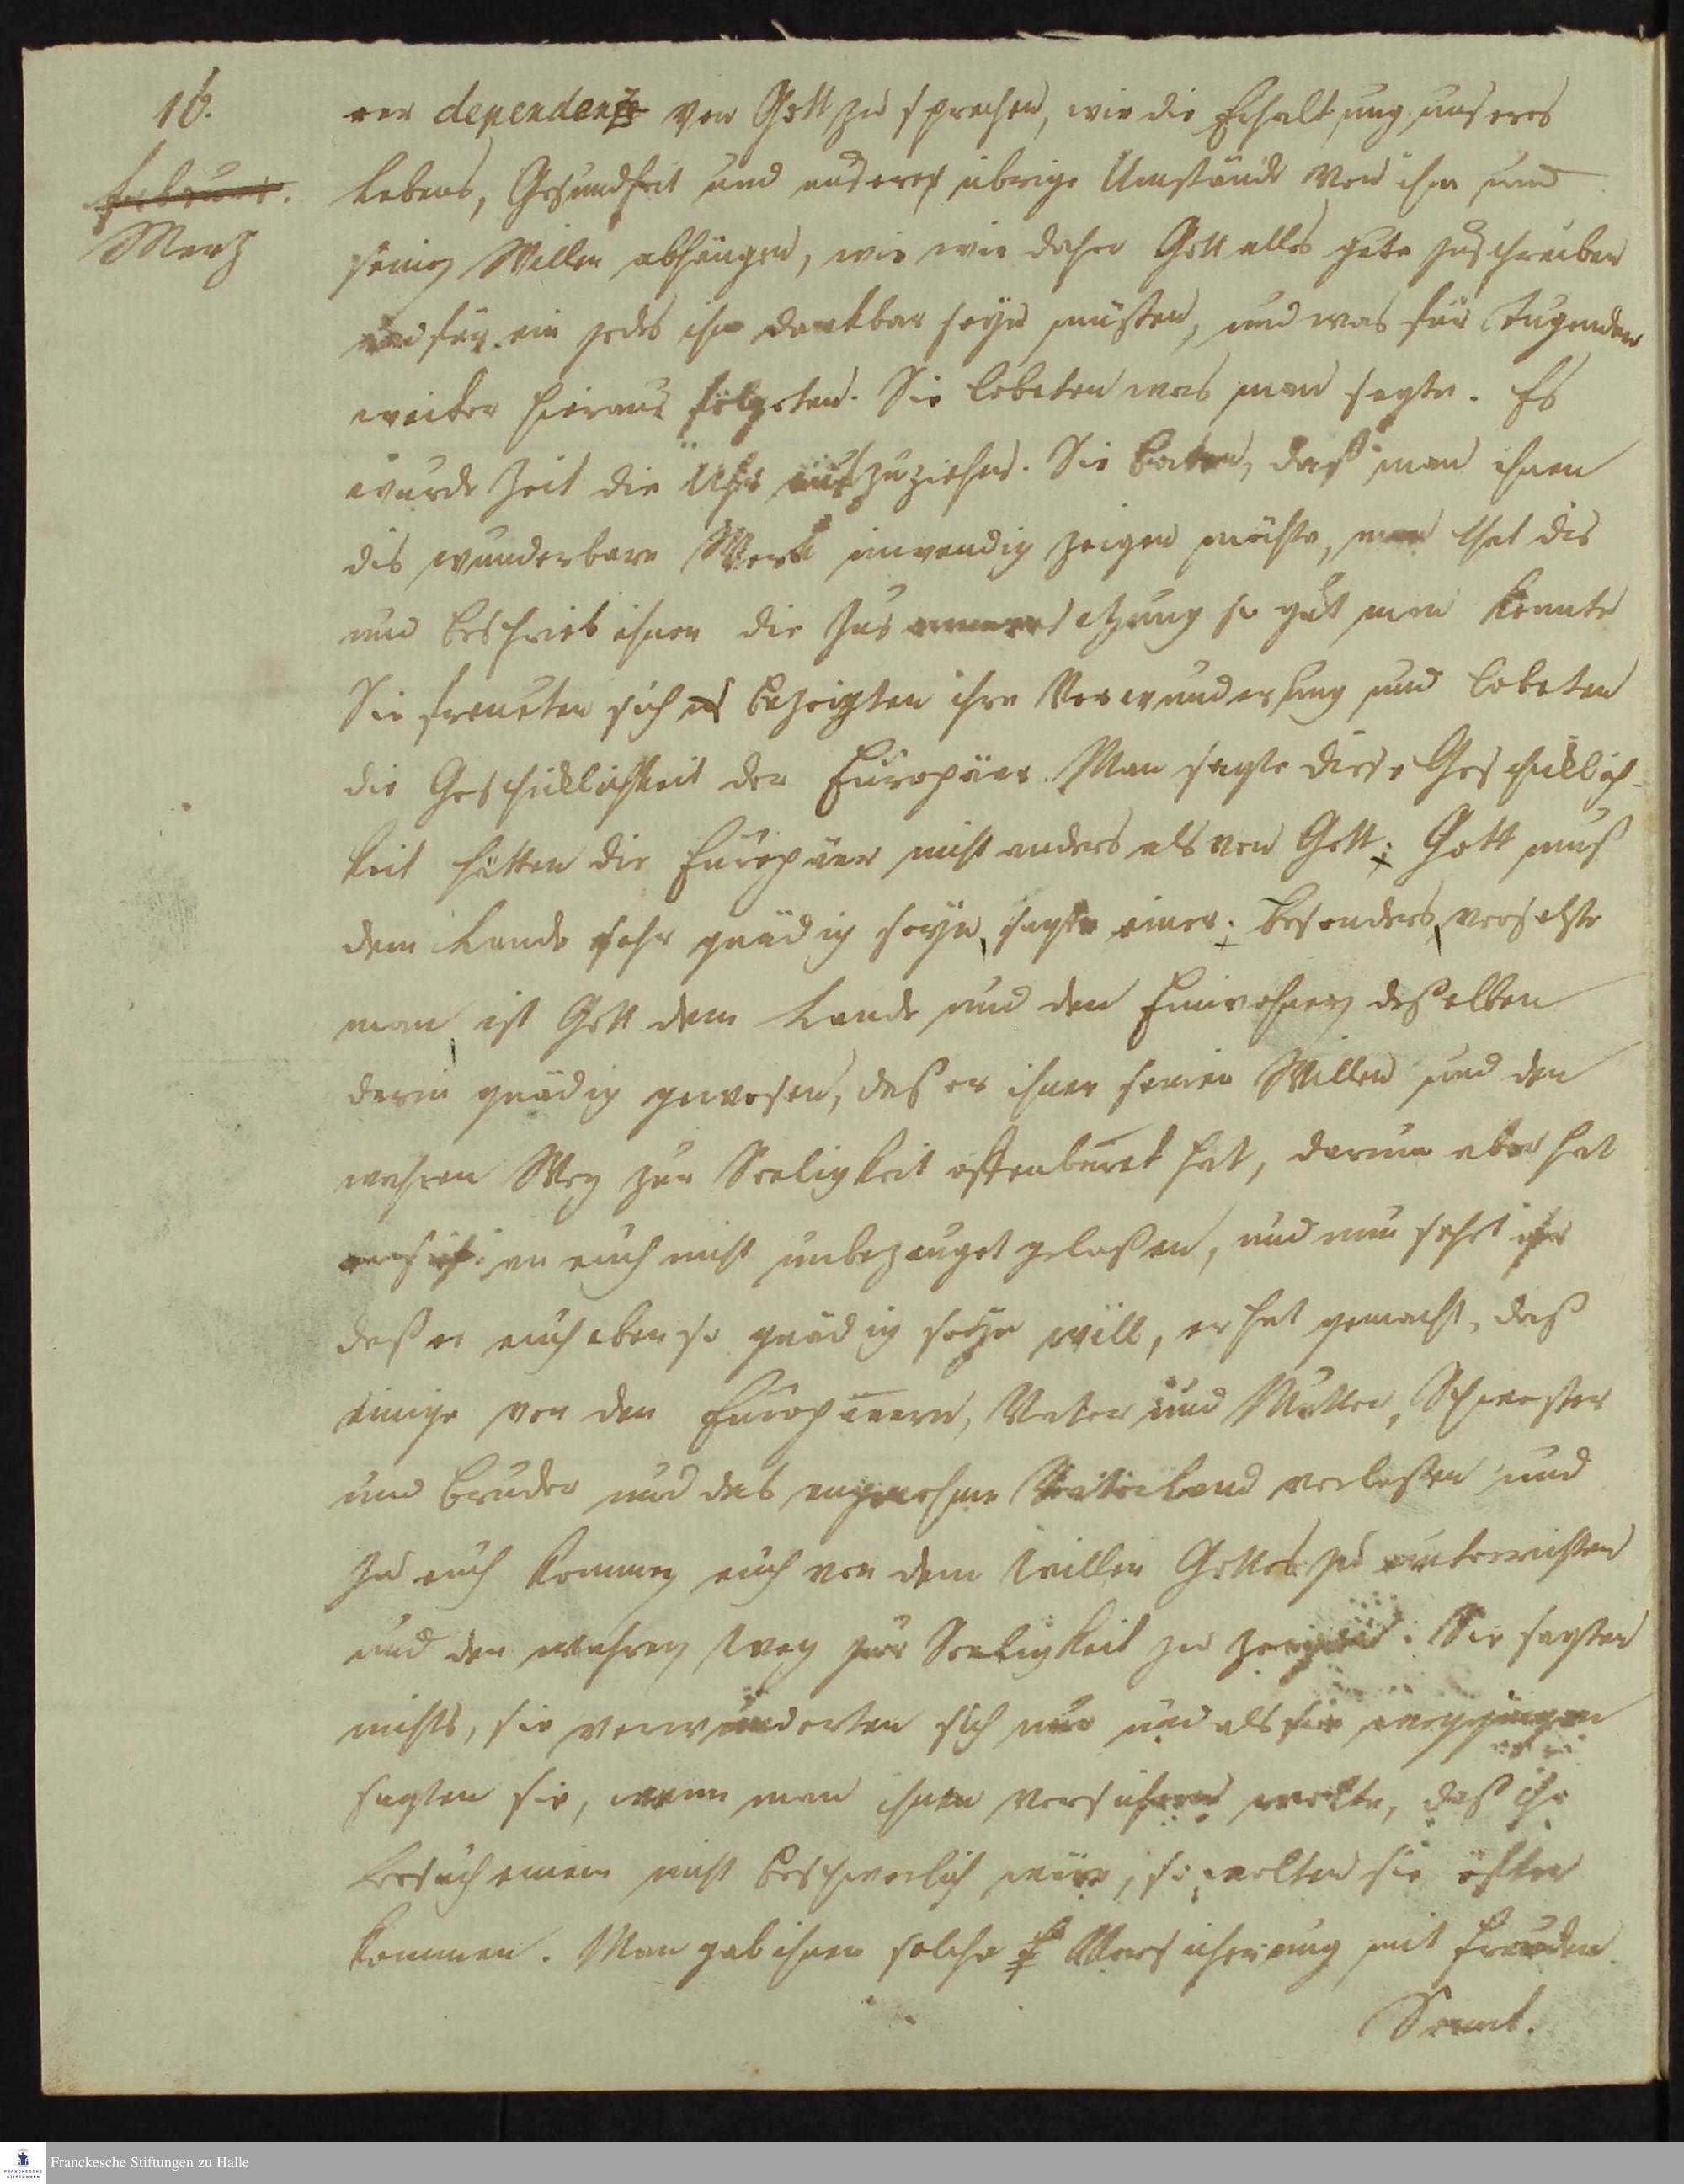 16.
Februar.
Merz
rer dependenz von Gott zu sprechen, wie die Erhaltung unseres
Lebens, Gesundheit und anderer übrige Umstände von ihm und
seinem Willen abhängen, wie wir daher Gott alles gute zuschreiben
und für ein jedes ihm dankbar seyn müßten, und was für Tugenden
weiter hieraus folgeten. Sie lobeten was man sagte. Es
wurde Zeit die Uhr aufzuziehen. Sie baten, daß man ihnen
dis wunderbare Werk inwendig zeigen möchte, man that dis
und beschrieb ihnen die Zusammensetzung so gut man konnte
Sie freueten sich bezeigten ihre Verwunderung und lobeten
die Geschicklichkeit der Europäer. Man sagte diese Geschicklich-
keit hätten die Europäer nicht anders als von Gott; Gott muß
dem Lande sehr gnädig seyn, sagte einer; besonders, versetzte
man, ist Gott dem Lande und den Einwohnern deßelben
darin gnädig gewesen, daß er ihnen seinen Willen und den
wahren Weg zur Seeligkeit offenbaret hat, darum aber hat
er sich an euch nicht unbezeuget gelaßen, und nun sehet ihr
daß er euch eben so gnädig seyn will, er hat gemacht, daß
einige von den Europäern, Vater und Mutter, Schwester
und Bruder und das angenehme Vaterland verlaßen und
zu euch kommen euch von dem Willen Gottes zu unterrichten
und den wahren Weg zur Seeligkeit zu zeigen. Sie sagten
nichts, sie verwunderten sich nur und als sie weggingen
sagten sie, wenn man ihnen versichern wolte, daß ihr
Besuch einem nicht beschwerlich wäre, so wolten sie öfter
kommen. Man gab ihnen solche Versicherung mit Freuden.
Sonnt.
Franckesche Stiftungen zu Halle
FRANCKESCHE
STIFTUNGEN